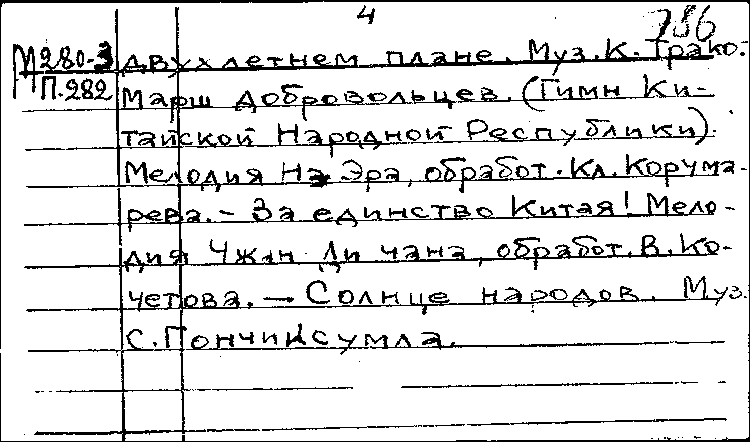 4
786
М280-3 двухлетнем плане. Муз. К. Грако.
П.282 Марш добровольцев. (Гимн Ки-
тайской Народной Республики).
Мелодия На Эра, обработ. Кл. Корчма-
рева. – За единство Китая! Мело-
дия Чжан Ди чана, обработ. В. Ко-
четова. — Солнце народов. Муз.
С. Пончиксумла.